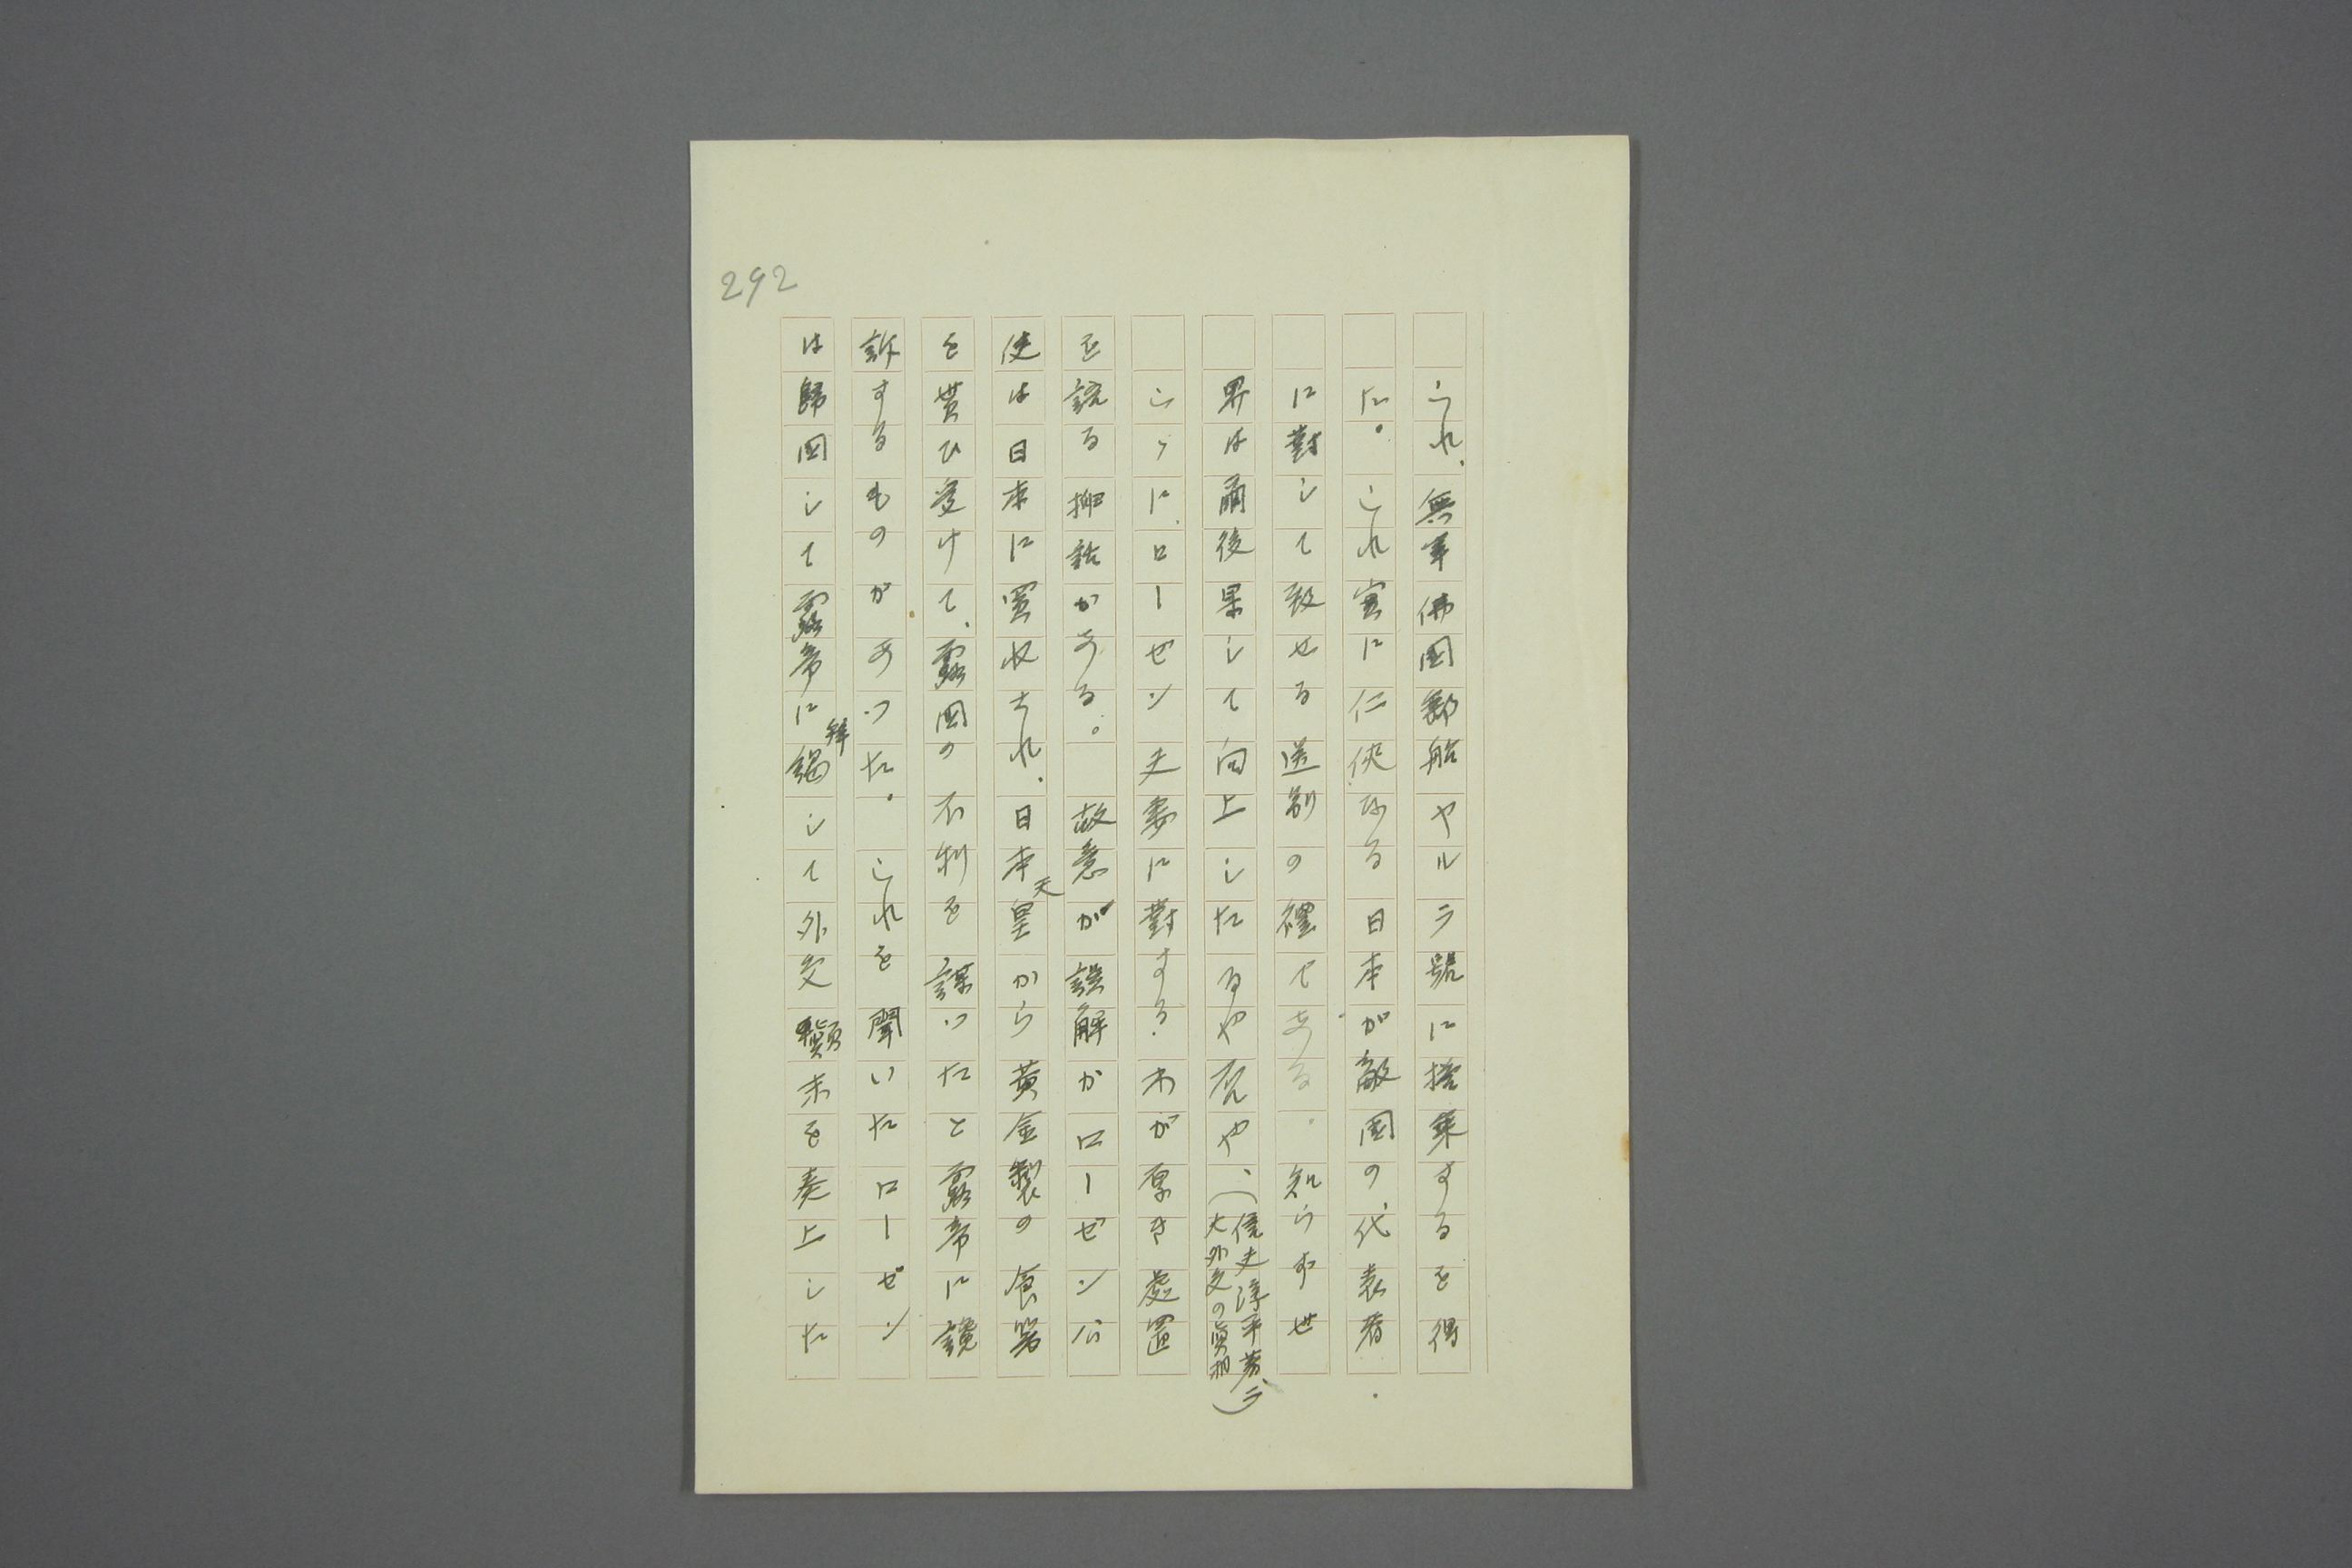 292
られ、無事佛国郵船ヤルラ號に搭乗するを得
た。これ実に仁侠なる日本が敵国の代表者
に對して致せる送別の禮である。知らず世
界は爾後果して向上したるや否や、(信夫淳平著、二大外交の眞相)
こゝに、ローゼン夫妻に對する、わが厚き處置
を誤る挿話がある。故意が誤解かローゼン公
使は日本に買収され、日本天皇から黄金製の食器
を貰ひ受けて、露国の不利を謀つたと露帝に讒
訴するものがあつた。これを聞いたローゼン
は歸国して露帝に拜謁して外交顛末を奏上した